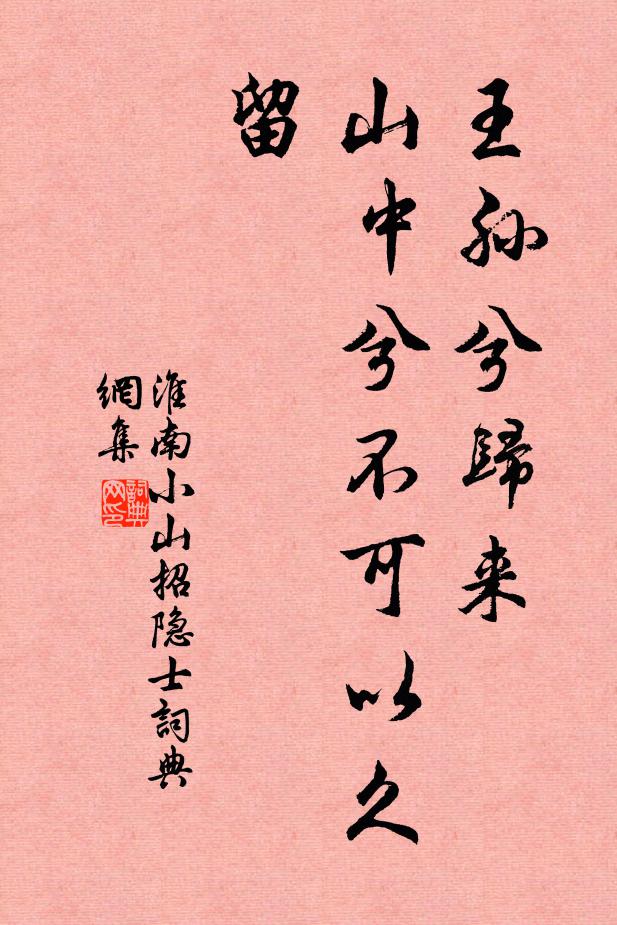 王孙兮歸来
山中兮不可以久
留
淮南小山招隐士詞典
網集
詞典
网印